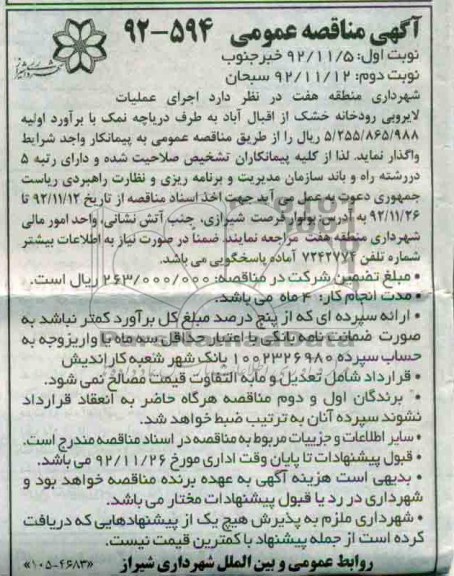 آگهی مناقصه عمومی ۵۹۴-۹۲
نوبت اول: ۹۲/۱۱/۵ خبرجنوب
نوبت دوم: ۹۲/۱۱/۱۲ سبحان
شهرداری منطقه هفت در نظر دارد اجرای عملیات
لایروبی رودخانه خشک از اقبال آباد به طرف دریاچه نمک با برآورد اولیه
۵/۲۵۵/۸۶۵/۹۸۸ ریال را از طریق مناقصه عمومی به پیمانکار واجد شرایط
واگذار نماید. لذا از کلیه پیمانکاران تشخیص صلاحیت شده و دارای رتبه ۵
دررشته راه و باند سازمان مدیریت و برنامه ریزی و نظارت راهبردی ریاست
جمهوری دعوت به عمل می آید جهت اخذ اسناد مناقصه از تاریخ ۹۲/۱۱/۱۲ تا
۹۲/۱۱/۲۶ به آدرس بولوار فرصت شیرازی، جنب آتش نشانی، واحد امور مالی
شهرداری منطقه هفت مراجعه نمایند. ضمناً در صورت نیاز به اطلاعات بیشتر
شماره تلفن ۷۲۴۲۷۷۴ آماده پاسخگویی می باشد.
• مبلغ تضمین شرکت در مناقصه: ۲۶۳/۰۰۰/۰۰۰ ریال است.
• مدت انجام کار: ۴ ماه می باشد.
• ارائه سپرده ای که از پنج درصد مبلغ کل برآورد کمتر نباشد به
صورت ضمانت نامه بانکی با اعتبار حداقل سه ماه یا واریز وجه به
حساب سپرده ۱۰۰۲۳۲۶۹۸۰ بانک شهر شعبه کاراندیش
• قرارداد شامل تعدیل و مابه التفاوت قیمت مصالح نمی شود.
• برندگان اول و دوم مناقصه هرگاه حاضر به انعقاد قرارداد
نشوند سپرده آنان به ترتیب ضبط خواهد شد.
• سایر اطلاعات و جزییات مربوط به مناقصه در اسناد مناقصه مندرج است.
• قبول پیشنهادات تا پایان وقت اداری مورخ ۹۲/۱۱/۲۶ می باشد.
• بدیهی است هزینه آگهی به عهده برنده مناقصه خواهد بود و
شهرداری در رد یا قبول پیشنهادات مختار می باشد.
• شهرداری ملزم به پذیرش هیچ یک از پیشنهادهایی که دریافت
کرده است از جمله پیشنهاد با کمترین قیمت نیست.
روابط عمومی و بین الملل شهرداری شیراز «۱۰۵-۴۶۸۳»